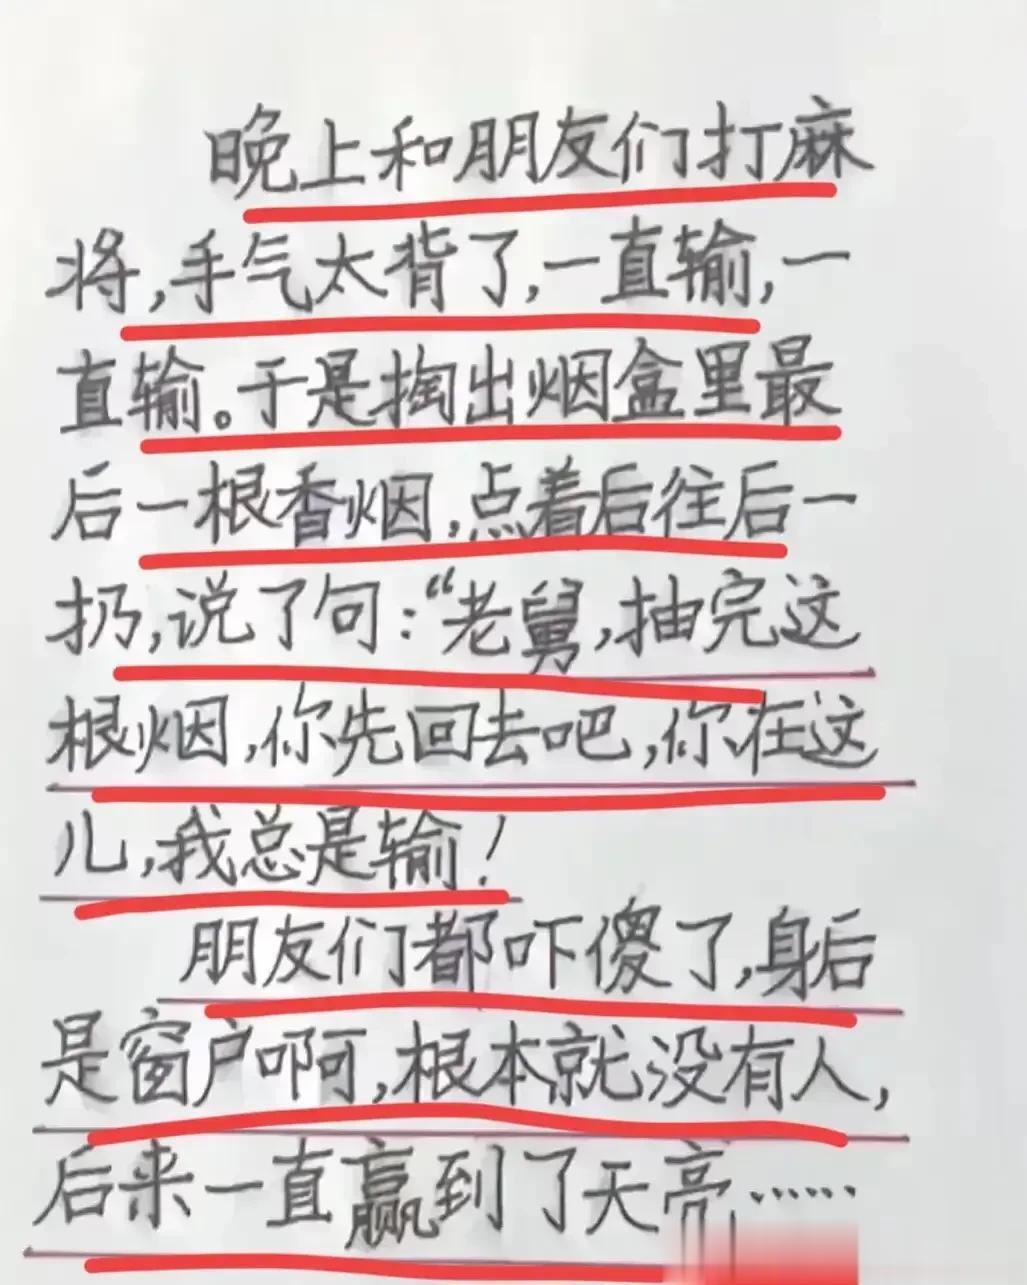 晚上和朋友们打麻
将,手气太背了,一直输,一
直输。于是掏出烟盒里最
后一根香烟,点着后往后一
扔,说了句:“老舅,抽完这
根烟,你先回去吧,你在这
儿,我总是输!
朋友们都吓傻了,身后
是窗户啊,根本就没有人,
后来一直赢到了天亮……